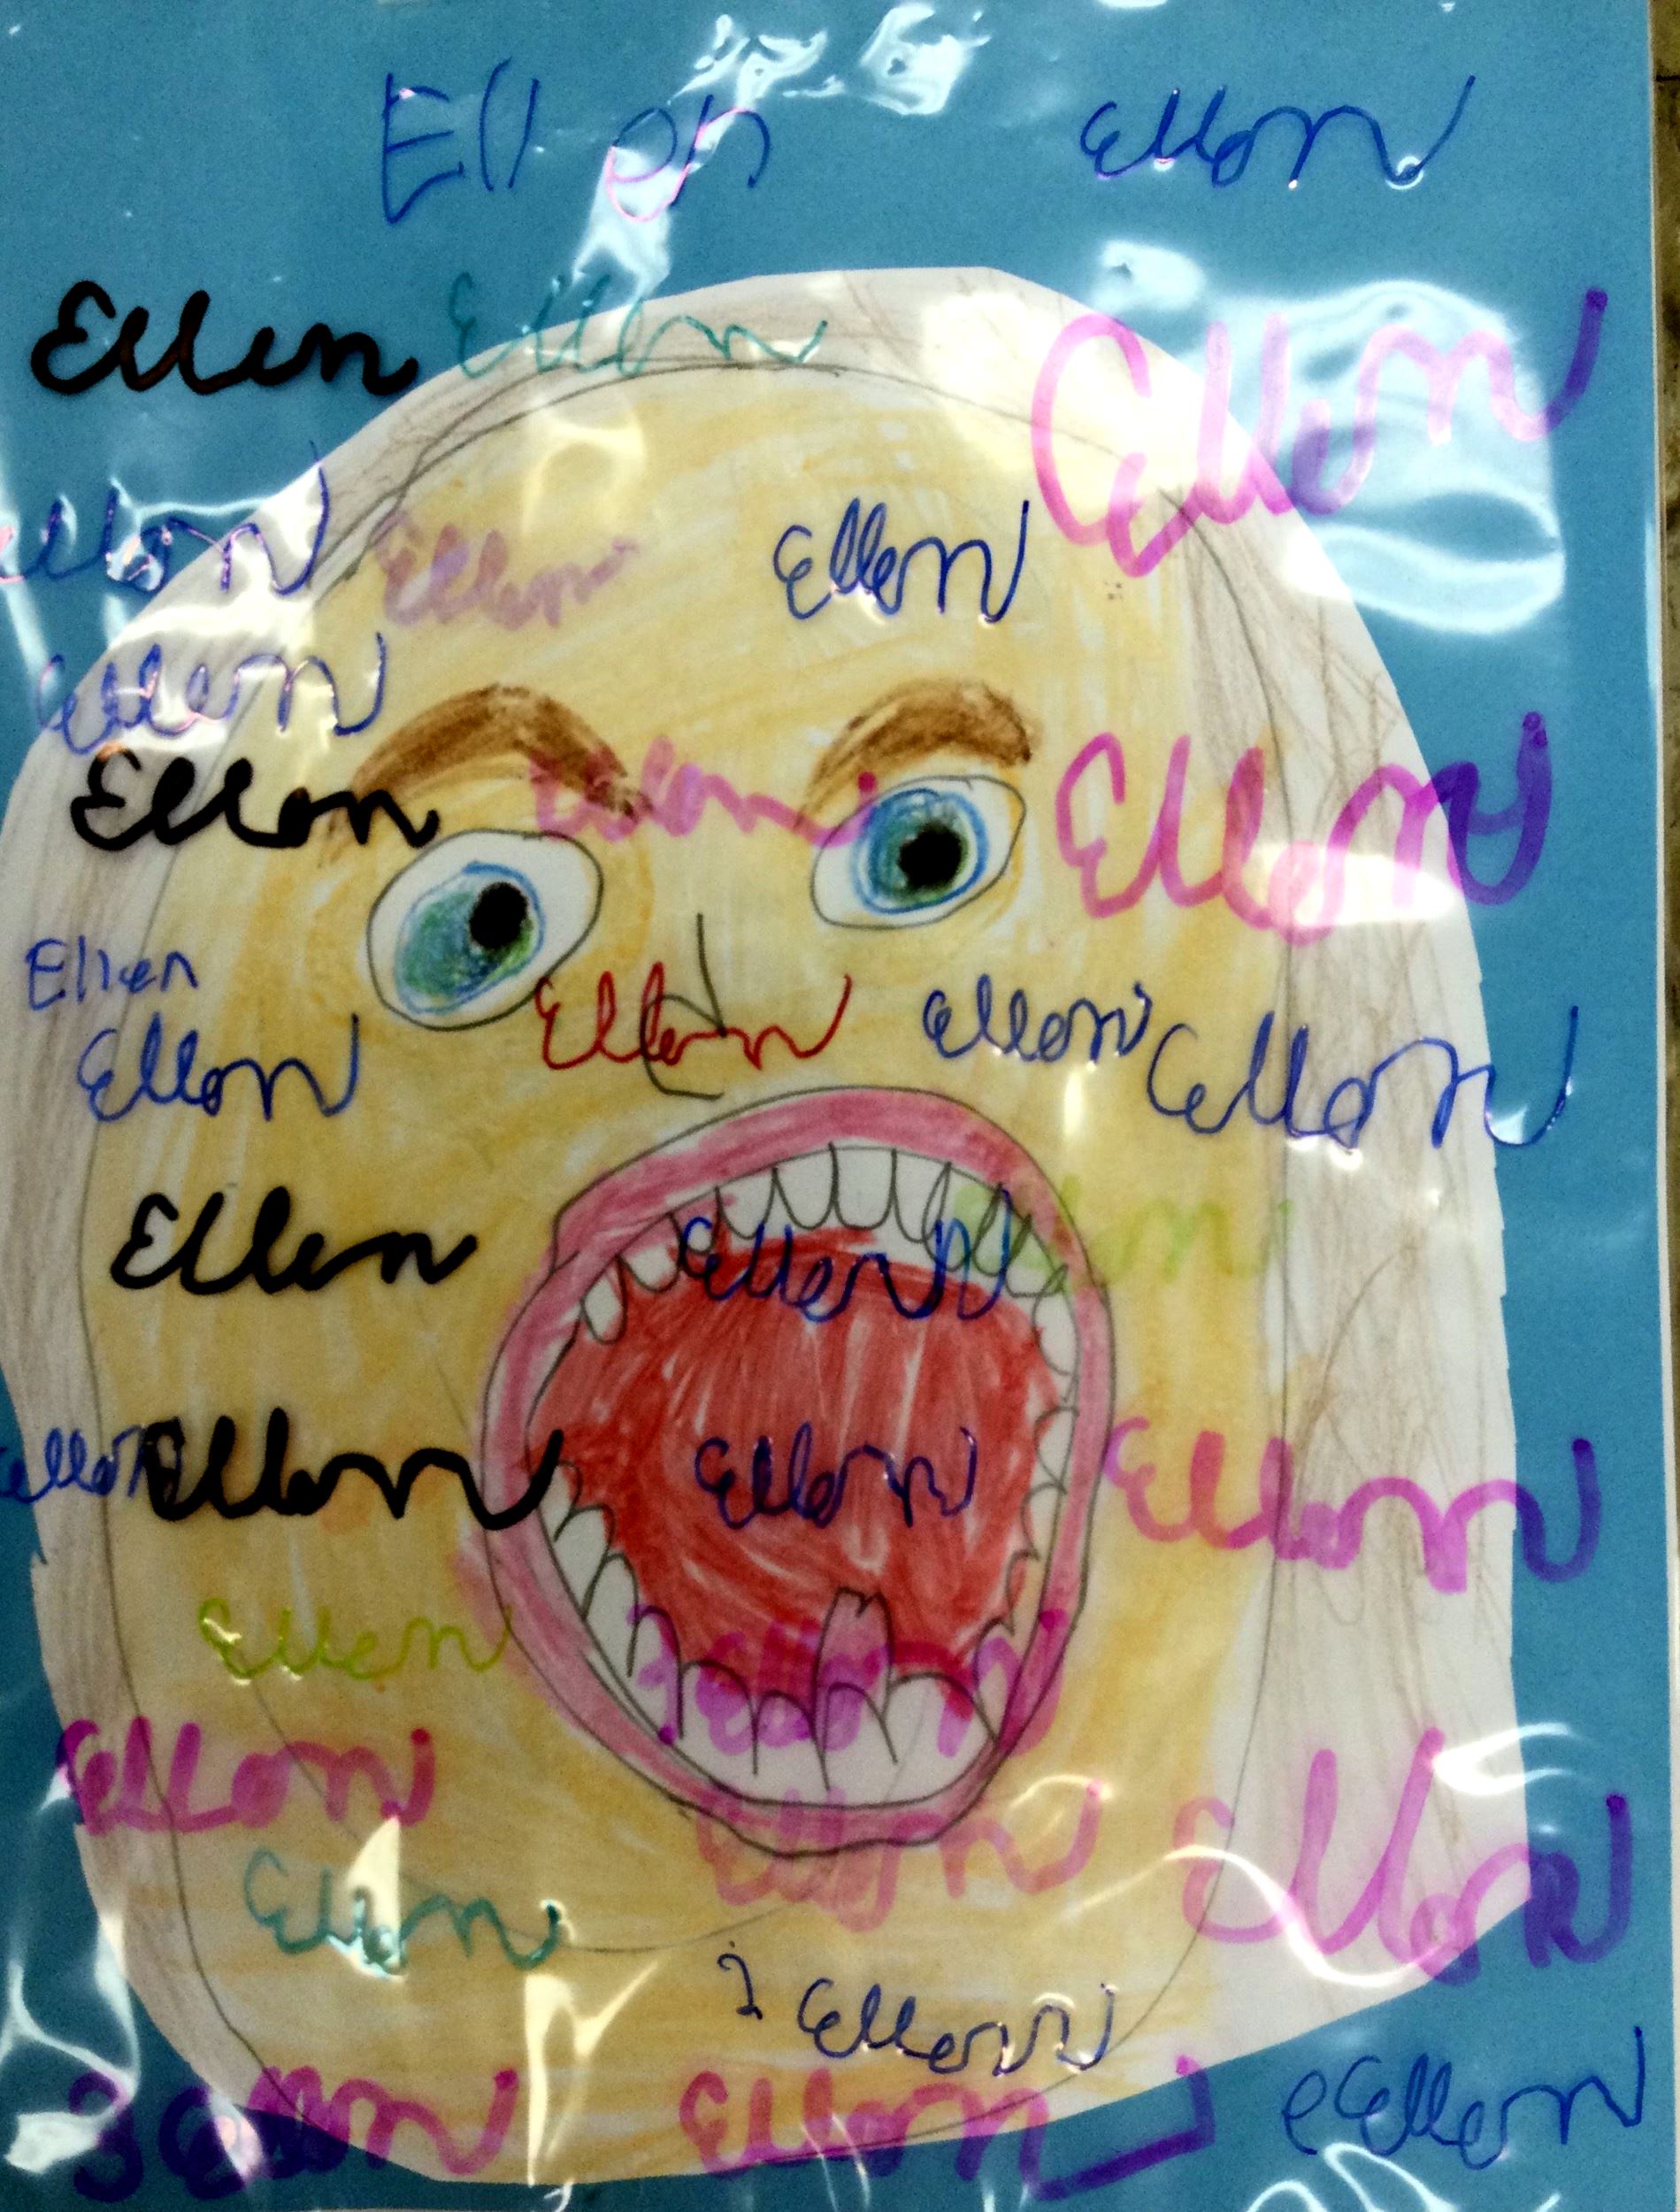 Ellen Ellen
Ellen Ellen Ellen
Ellen Ellen Ellen
Ellen
Ellen Ellen Ellen
Ellen
Ellen Ellen Ellen Ellen
Ellen Ellen
Ellen Ellen Ellen Ellen
Ellen
Ellen
Ellen Ellen Ellen
Ellen
Ellen
Ellen Ellen